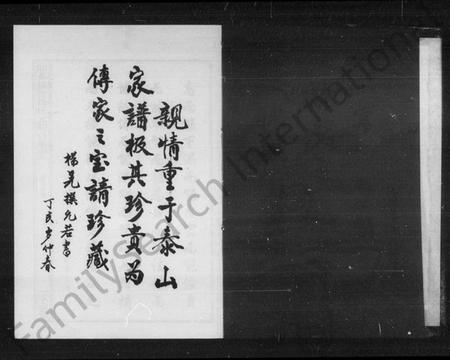 親情重于泰山
家譜极其珍貴為
傳家之宝請珍藏
楊見撰允若書
丁亥岁仲春
FamilySearch International